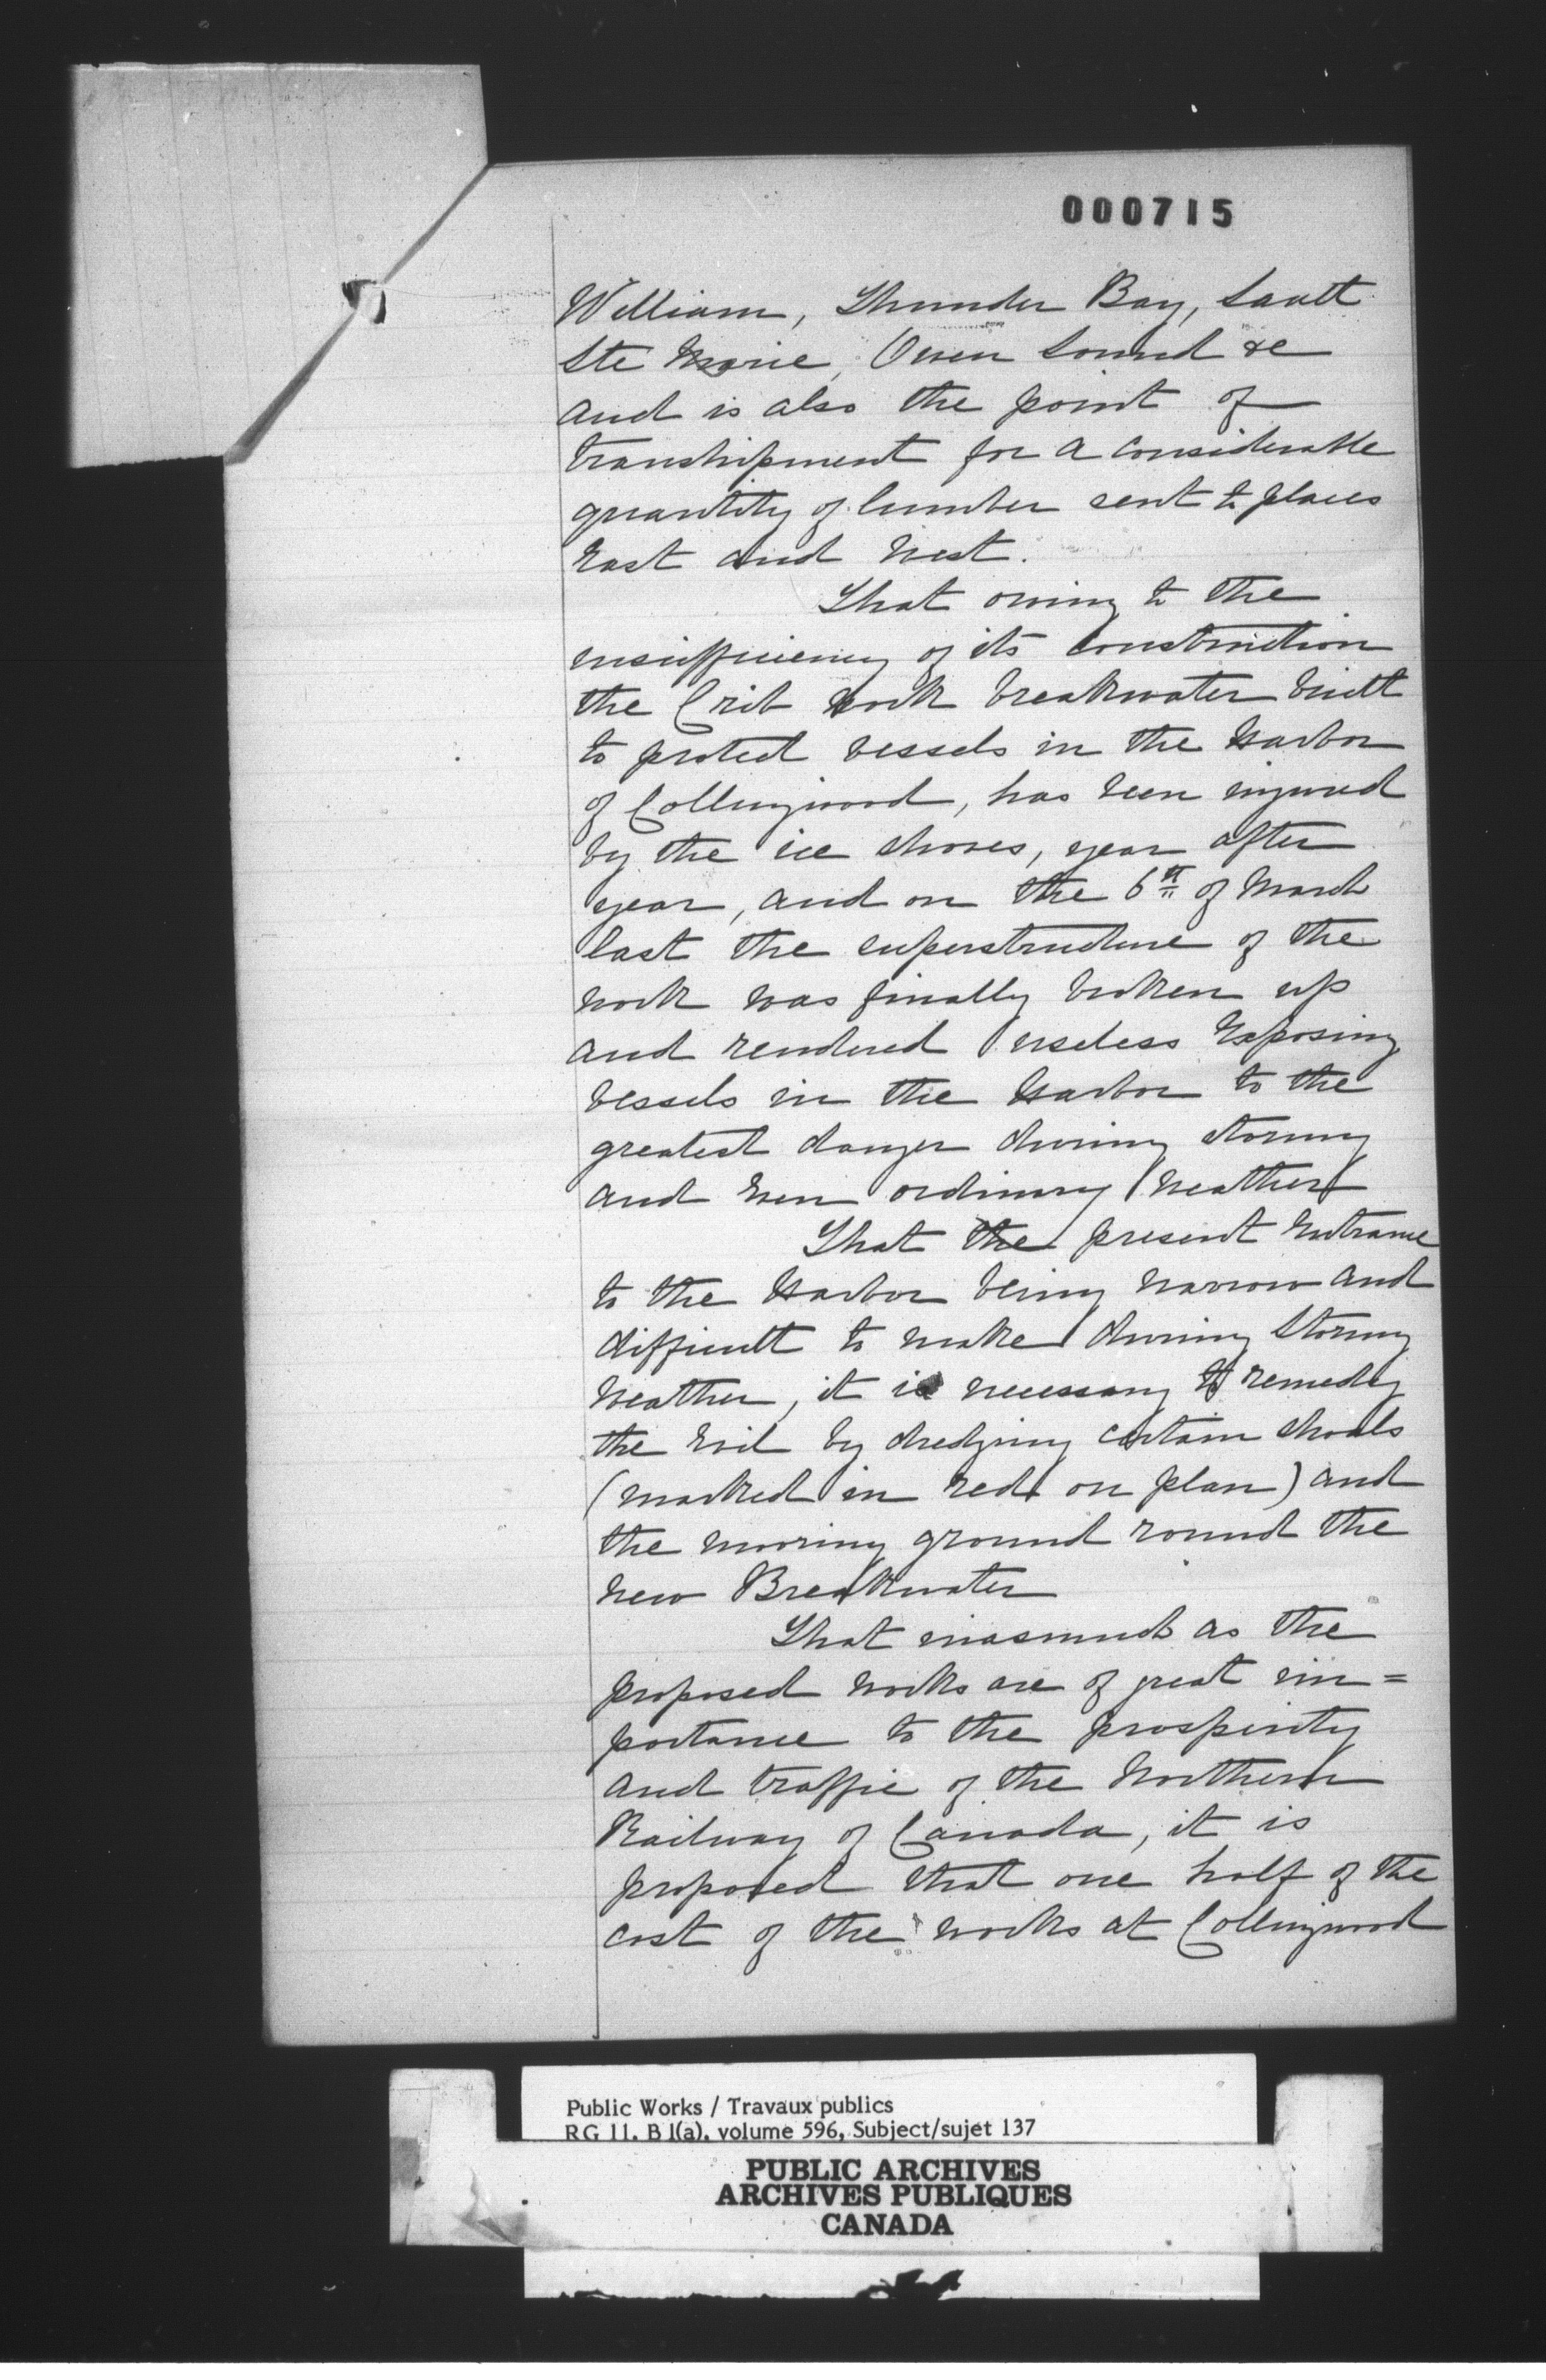 000715
William, Thunder Bay, Sault
Ste Marie, Owen Sound &c
and is also the point of
transhipment for a considerable
quantity of lumber sent to places
East and West.
That owing to the
insufficiency of its construction
the Crib work breakwater built
to protect vessels in the Harbor
of Collingwood, has been injured
by the ice shoves, year after
year, and on the 6th of March
last the superstructure of the
work was finally broken up
and rendered useless Exposing
vessels in the Harbor to the
greatest danger during stormy
and Even ordinary weather
That the present Entrance
to the Harbor being narrow and
difficult to make during Stormy
weather, it is necessary to remedy
the Evil by dredging certain shoals
(marked in red on plan) and
the mooring ground round the
new Breakwater
That inasmuch as the
proposed works are of great im=
portance to the prosperity
and traffic of the Northern
Railway of Canada, it is
proposed that one half of the
cost of the works at Collingwood
Public Works / Travaux publics
RG 11, B 1(a), volume 596, Subject/sujet 137
PUBLIC ARCHIVES
ARCHIVES PUBLIQUES
CANADA